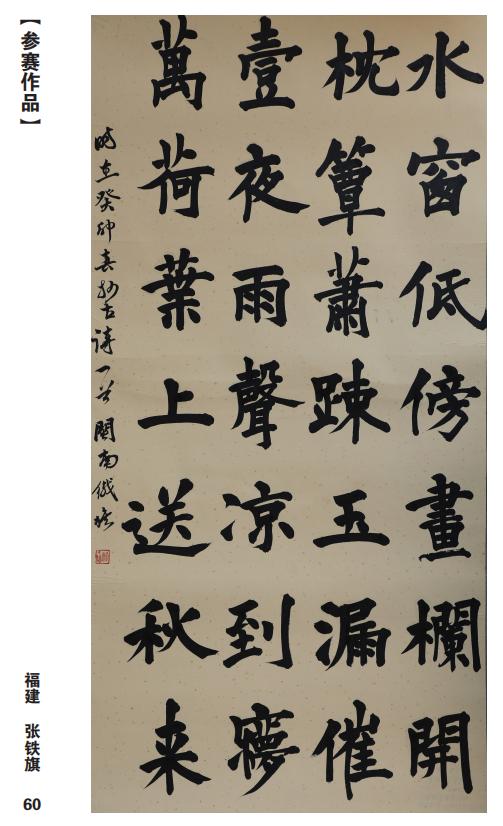 【参赛作品】
水窗低傍畫欄開
枕簟蕭踈五漏催
壹夜雨聲凉到夢
萬荷葉上送秋来
時在癸卯春抄古詩一首閩南
福建 张铁旗
60